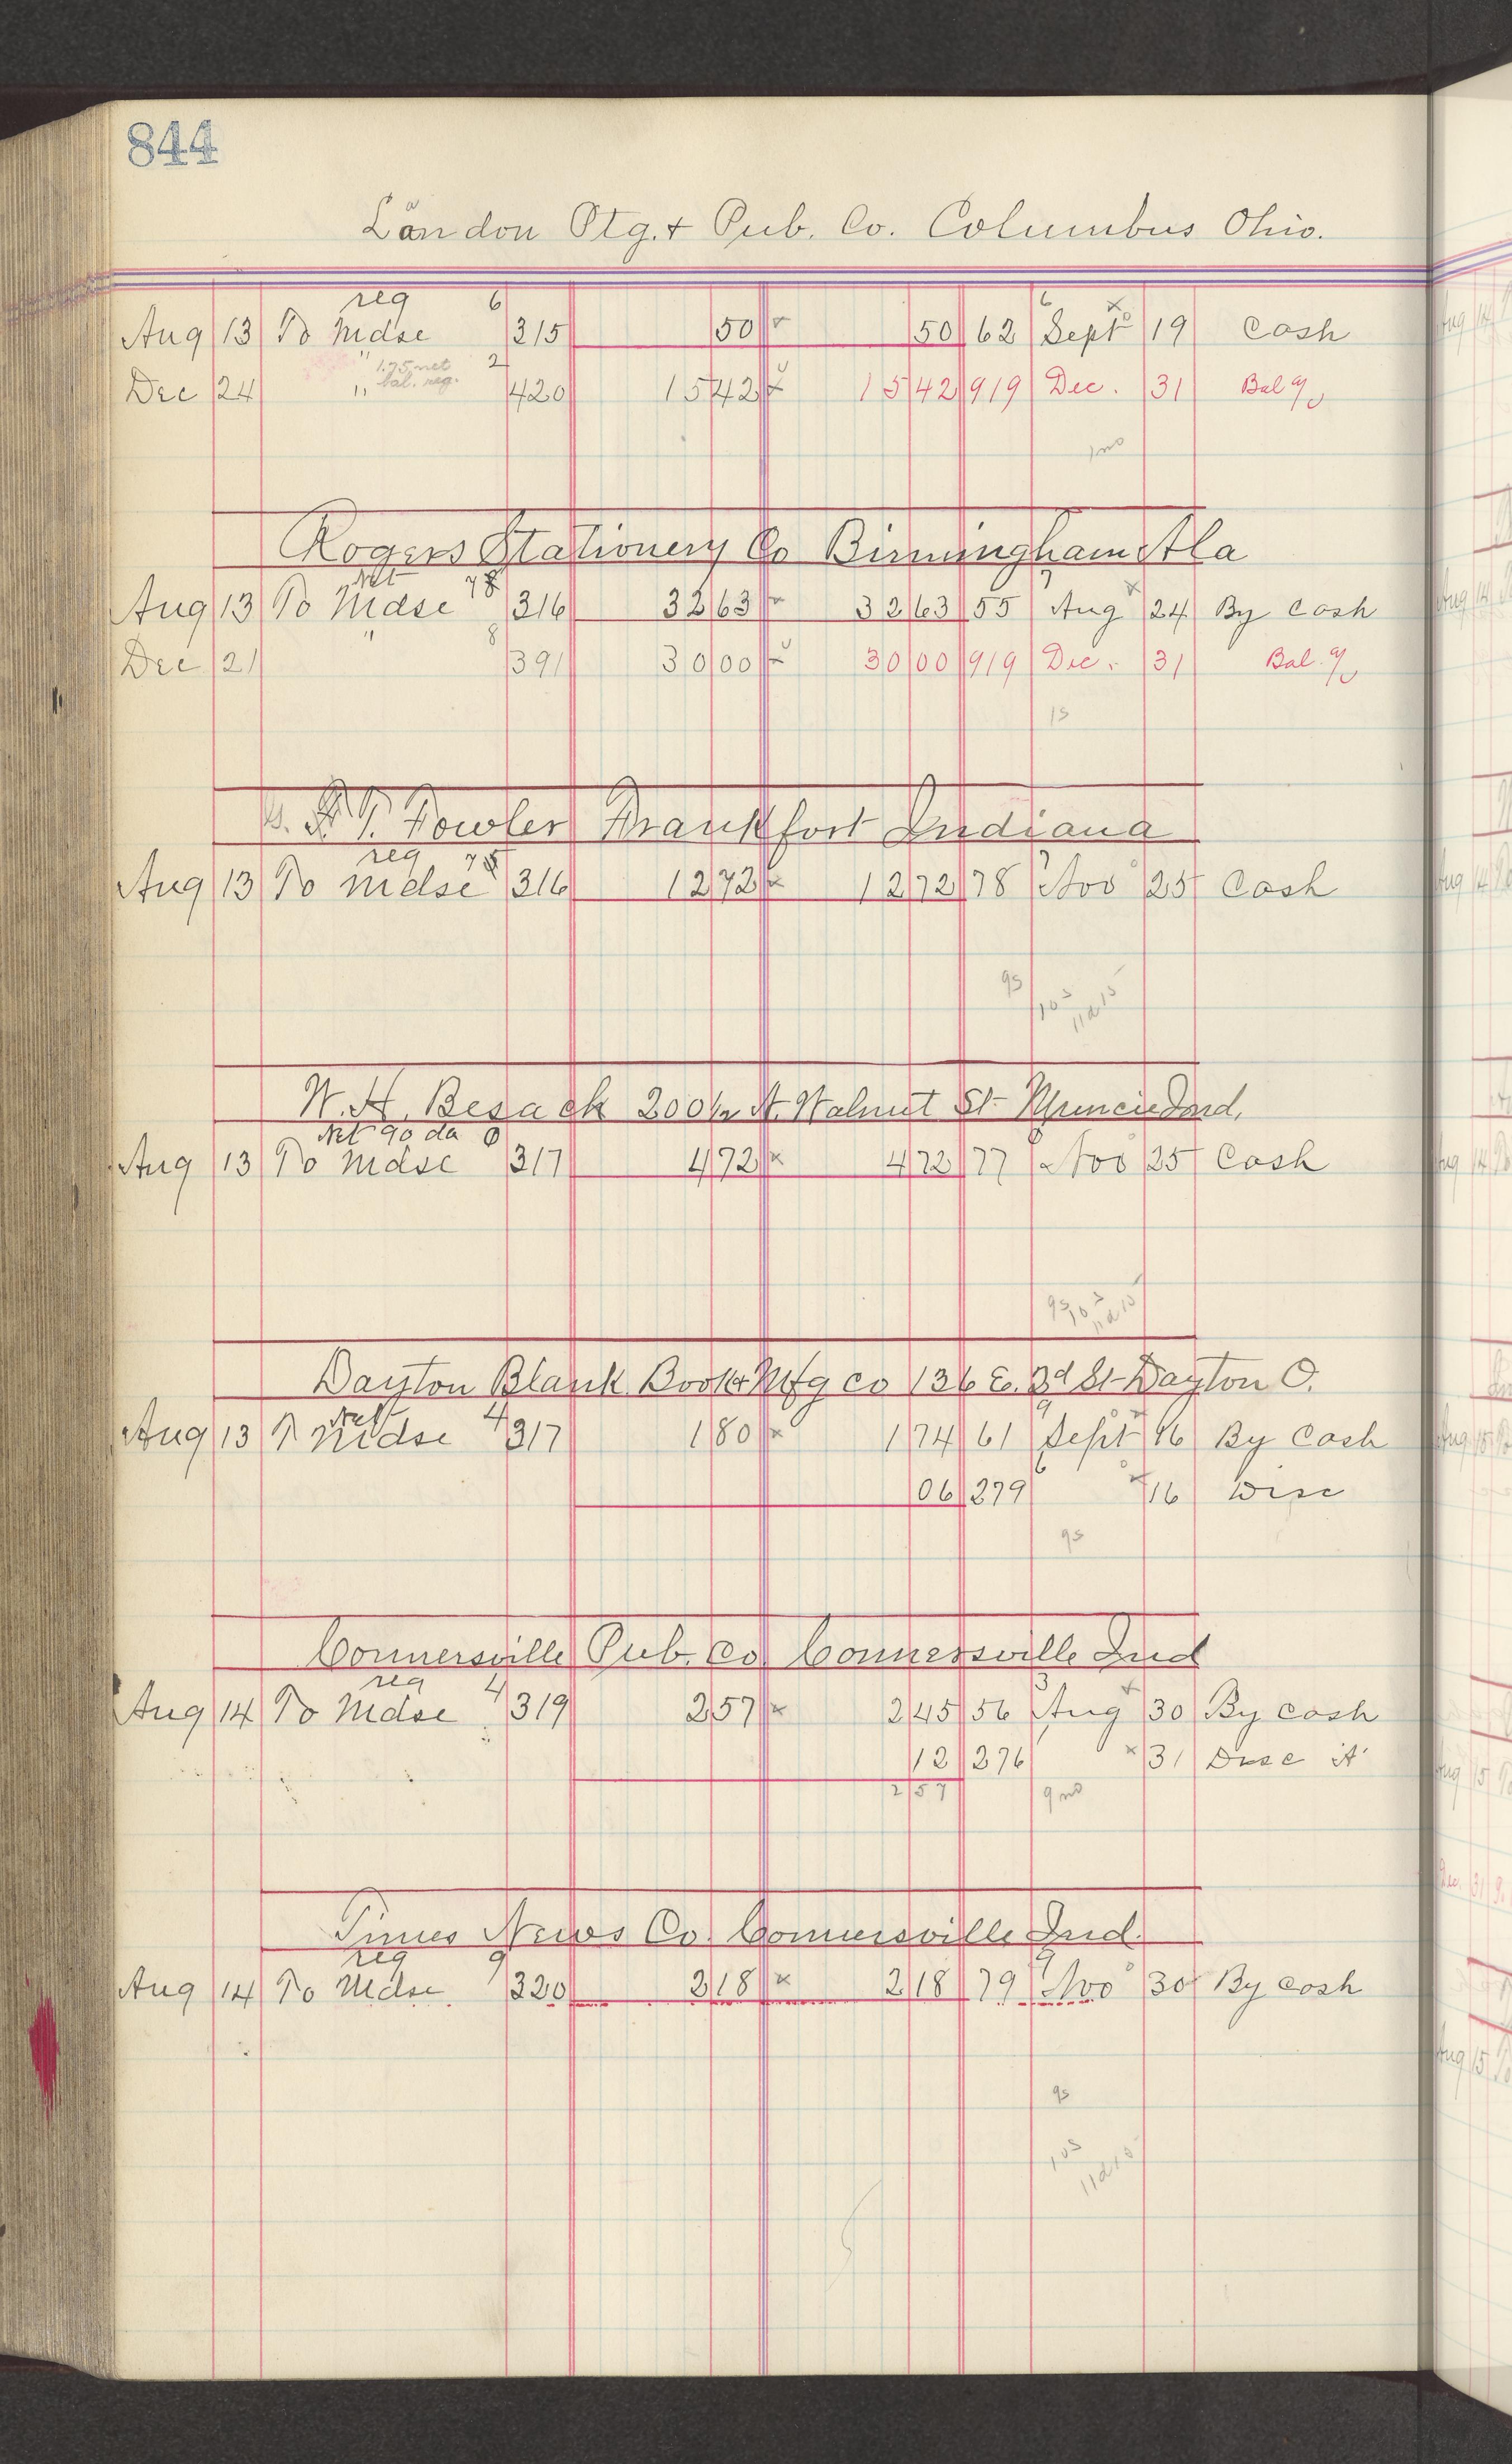 844
London Ptg. & Pub. Co. Columbus Ohio.
reg 6 6 x
Aug 13 To Mdse 315 50 50 62 Sept 19 Cash
" 1.75 net 2
bal. reg.
Dec 24 " 420 15 42 15 42 919 Dec. 31 Bal
1mo
Rogers Stationery Co Birmingham Ala
Net 7 x
Aug 13 To Mdse 316 32 63 32 63 55 Aug 24 By Cash
" 8
Dec 21 391 30 00 30 00 919 Dec. 31 Bal.
1s
F. T. Fowler Frankfort Indiana
reg 7
Aug 13 To Mdse 316 12 72 x 12 72 78 Nov 25 Cash
9s
10s
11d15
W. H. Besack 200½ N. Walnut St- Muncie Ind.
Net 90 da
Aug 13 To Mdse 317 4 72 x 4 72 77 Nov 25 Cash
9s 10s 11d15
Dayton Blank Book & Mfg Co 136 E. 3d St- Dayton O.
Net 4 9
Aug 13 T Mdse 317 1 80 x 1 74 61 Sept 16 By Cash
06 279 6 x 16 Disc
9s
Connersville Pub. Co Connersville Ind
reg 4 3 x
Aug 14 To Mdse 319 2 57 x 2 45 56 Aug 30 By Cash
12 276 x 31 Disc 'A'
2 57 9mo
Times News Co. Connersville Ind.
reg 9 9
Aug 14 To Mdse 320 2 18 x 2 18 79 Nov 30 By Cash
9s
10s
11d15